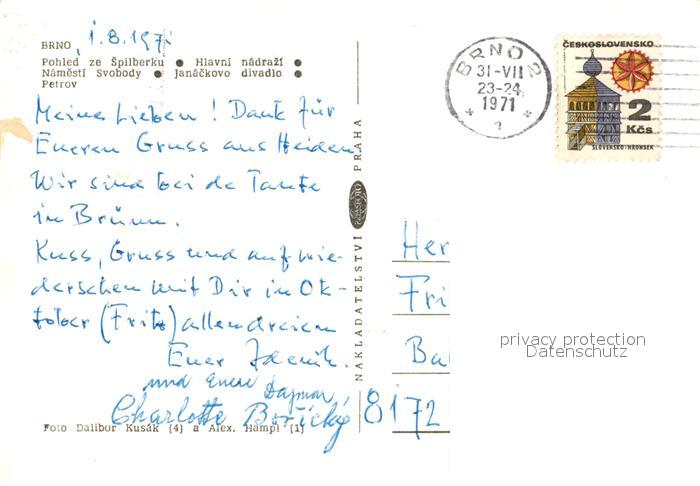 BRNO, 1.8.1971
Pohled ze Špilberku ● Hlavní nádraží ●
Náměstí Svobody ● Janáčkovo divadlo ●
Petrov
Meine Lieben! Dank für
Eueren Gruss aus Heiden.
Wir sind bei de Tante
in Brünn.
Kuss, Gruss und auf wie-
dersehen mit Dir in Ok-
tober (Fritz) allen dreien
Euer Zdeněk.
und Euere Dagmar,
Charlotte Bořický
Foto Dalibor Kusák (4) a Alex. Hampl (1)
NAKLADATELSTVÍ PRAHA
BRNO 2
31-VII
23-24
1971
ČESKOSLOVENSKO
2
Kčs
SLOVENSKO-HRONSEK
Her
Fri
Ba
8172
privacy protection
Datenschutz